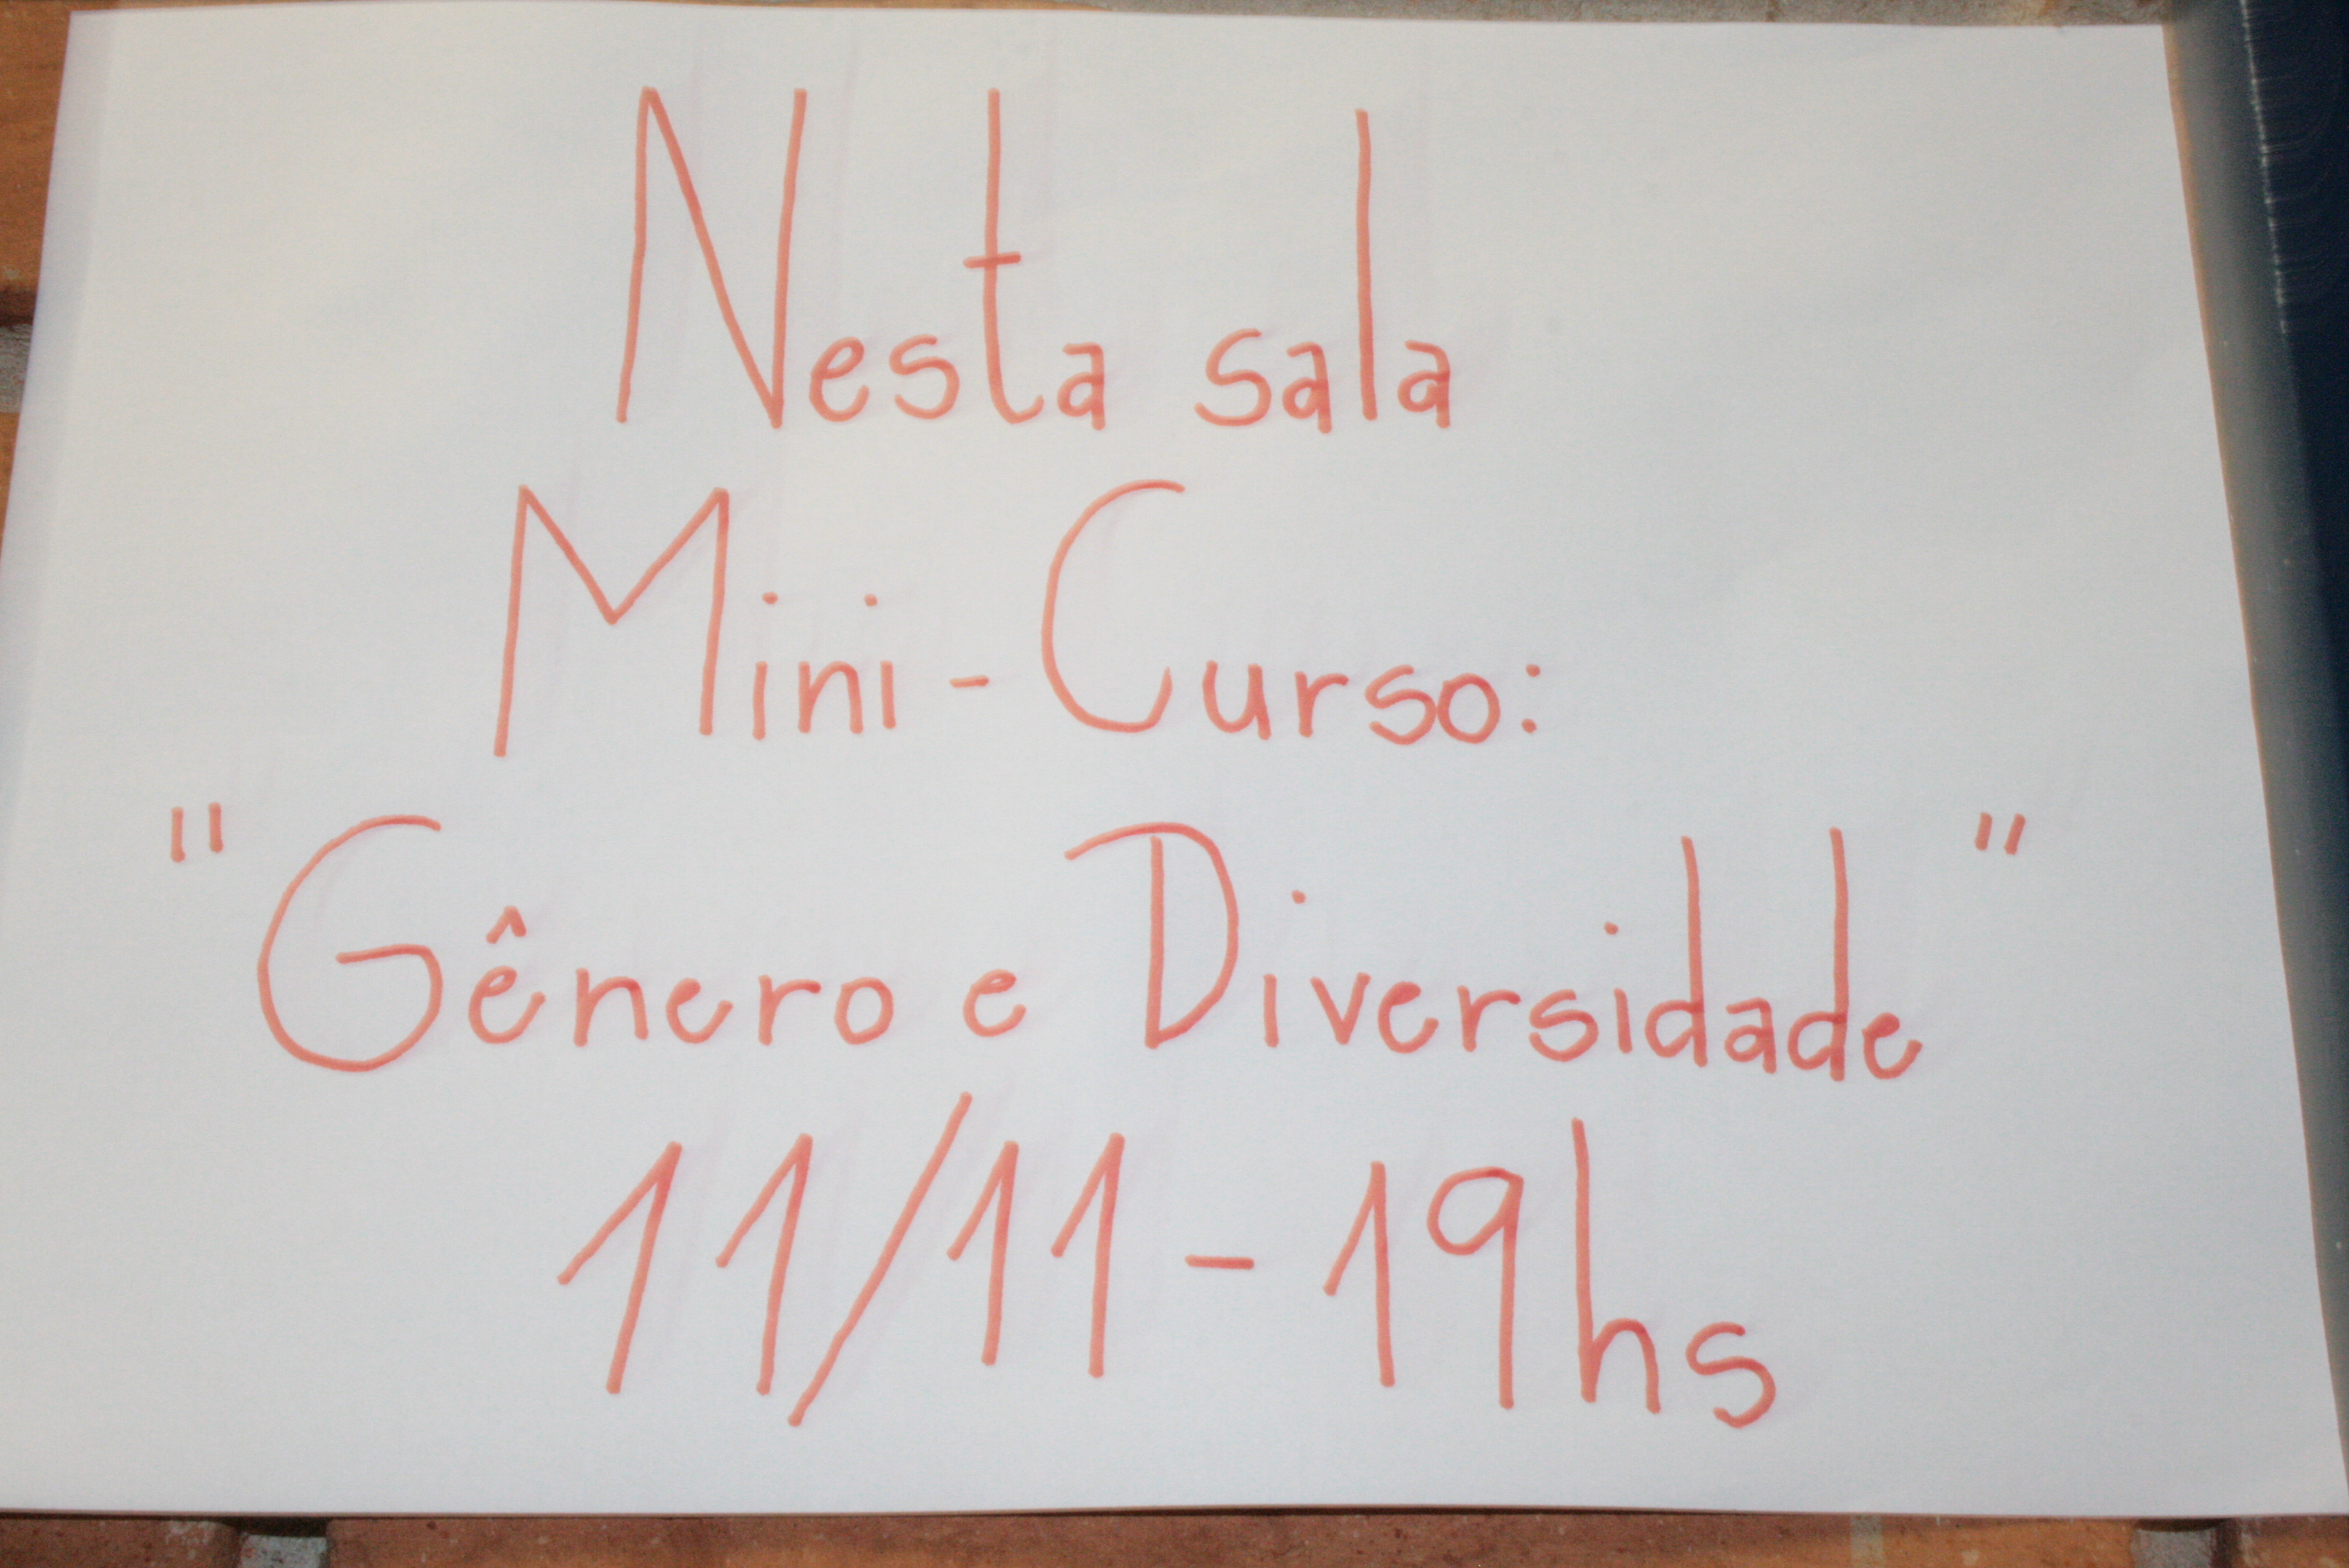 Nesta sala
Mini-Curso:
"Gênero e Diversidade"
11/11-19hs